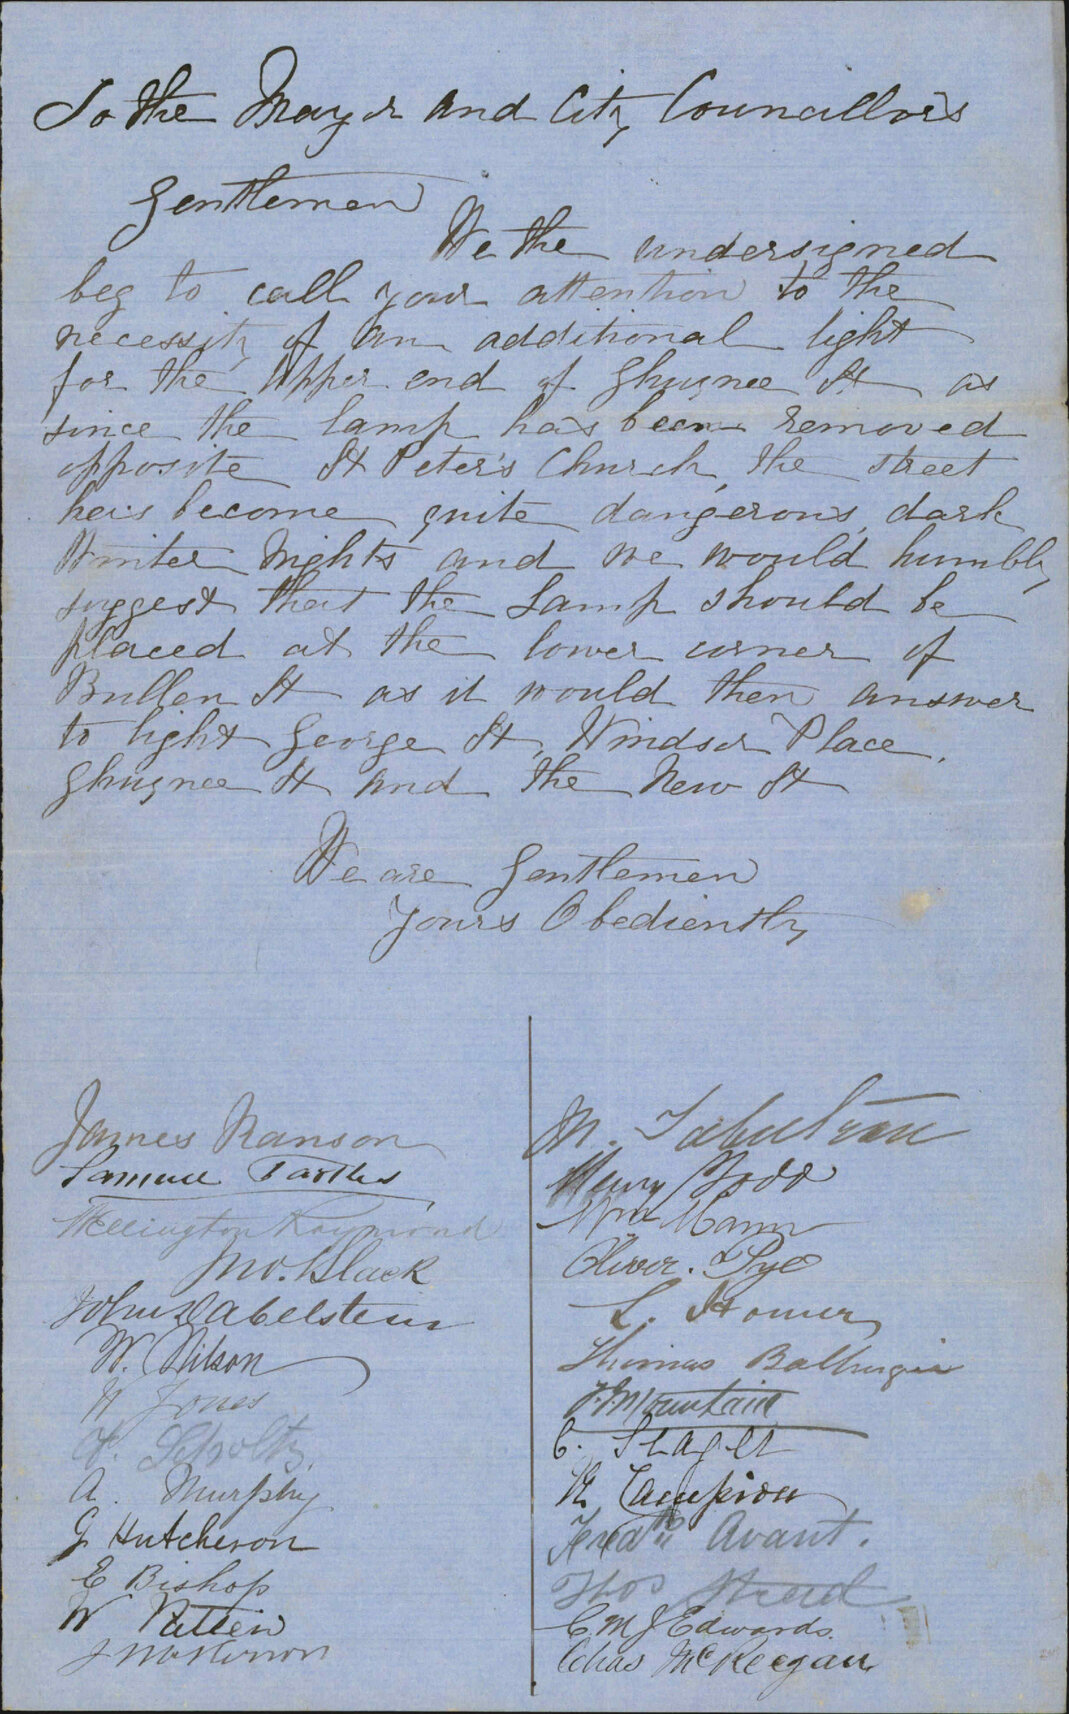 To the Mayor and City Councillors
Gentlemen
We the undersigned
beg to call your attention to the
necessity of an additional light
for the Upper end of Ghuznee St as
since the lamp has been removed
opposite St Peter's Church, the street
has become quite dangerous, dark
Winter Nights and we would humbly
suggest that the Lamp should be
placed at the lower corner of
Bullen St as it would then answer
to light George St, Windsor Place,
Ghuznee St and the New St
We are Gentlemen
Yours Obediently
James Ranson
Samuel
Wellington Raymond
Jno. Black
John Dabelstein
W. Wilson
H Jones
Scholtz.
A. Murphy
G Hutcheson
E Bishop
W Patten
J
M.
Henry Todd
Wm Mann
Oliver. Pye
L. Homer
Thomas Ballingie
Mountain
C. Slager
H Campion
Avant.
Thos
C. M. J Edwards.
Chas McKeegan